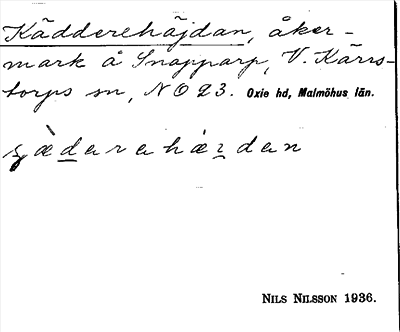 Kädderehäjdan, åker-
mark å Snapparp, V. Kärrs-
torps sn, NO 23. Oxie hd, Malmöhus län.
ɕæ̀derehæɪdan
NILS NILSSON 1936.